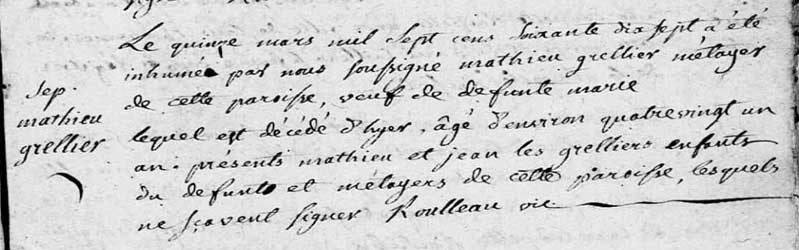 Sep.
mathieu
grellier
Le quinze mars mil sept cens soixante dix sept a été
inhumé par nous soussigné mathieu grellier métayer
de cette paroisse, veuf de defunte marie
lequel est décédé d'hyer, âgé d'environ quatrevingt un
an. présents mathieu et jean les grelliers enfants
du defunt et métayers de cette paroisse, lesquels
ne sçavent signer Roulleau vic.